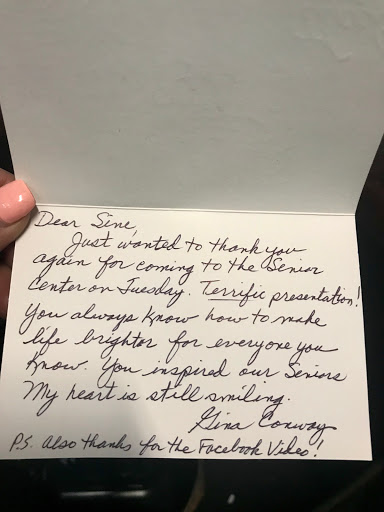 Dear Sine,
Just wanted to thank you
again for coming to the Senior
Center on Tuesday. Terrific presentation!
You always know how to make
life brighter for everyone you
know. You inspired our Seniors
My heart is still smiling.
Gina Conway
P.S. Also thanks for the Facebook Video!